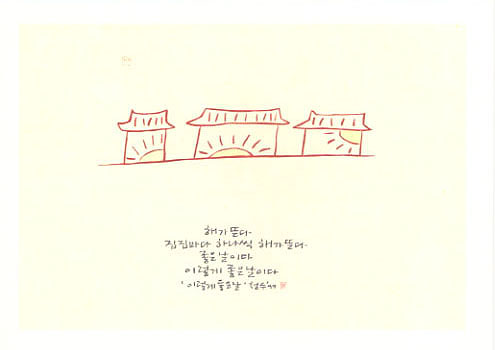 해가 뜬다
집집마다 하나씩 해가 뜬다
좋은날이다
이렇게 좋은날이다
'이렇게 좋은날'